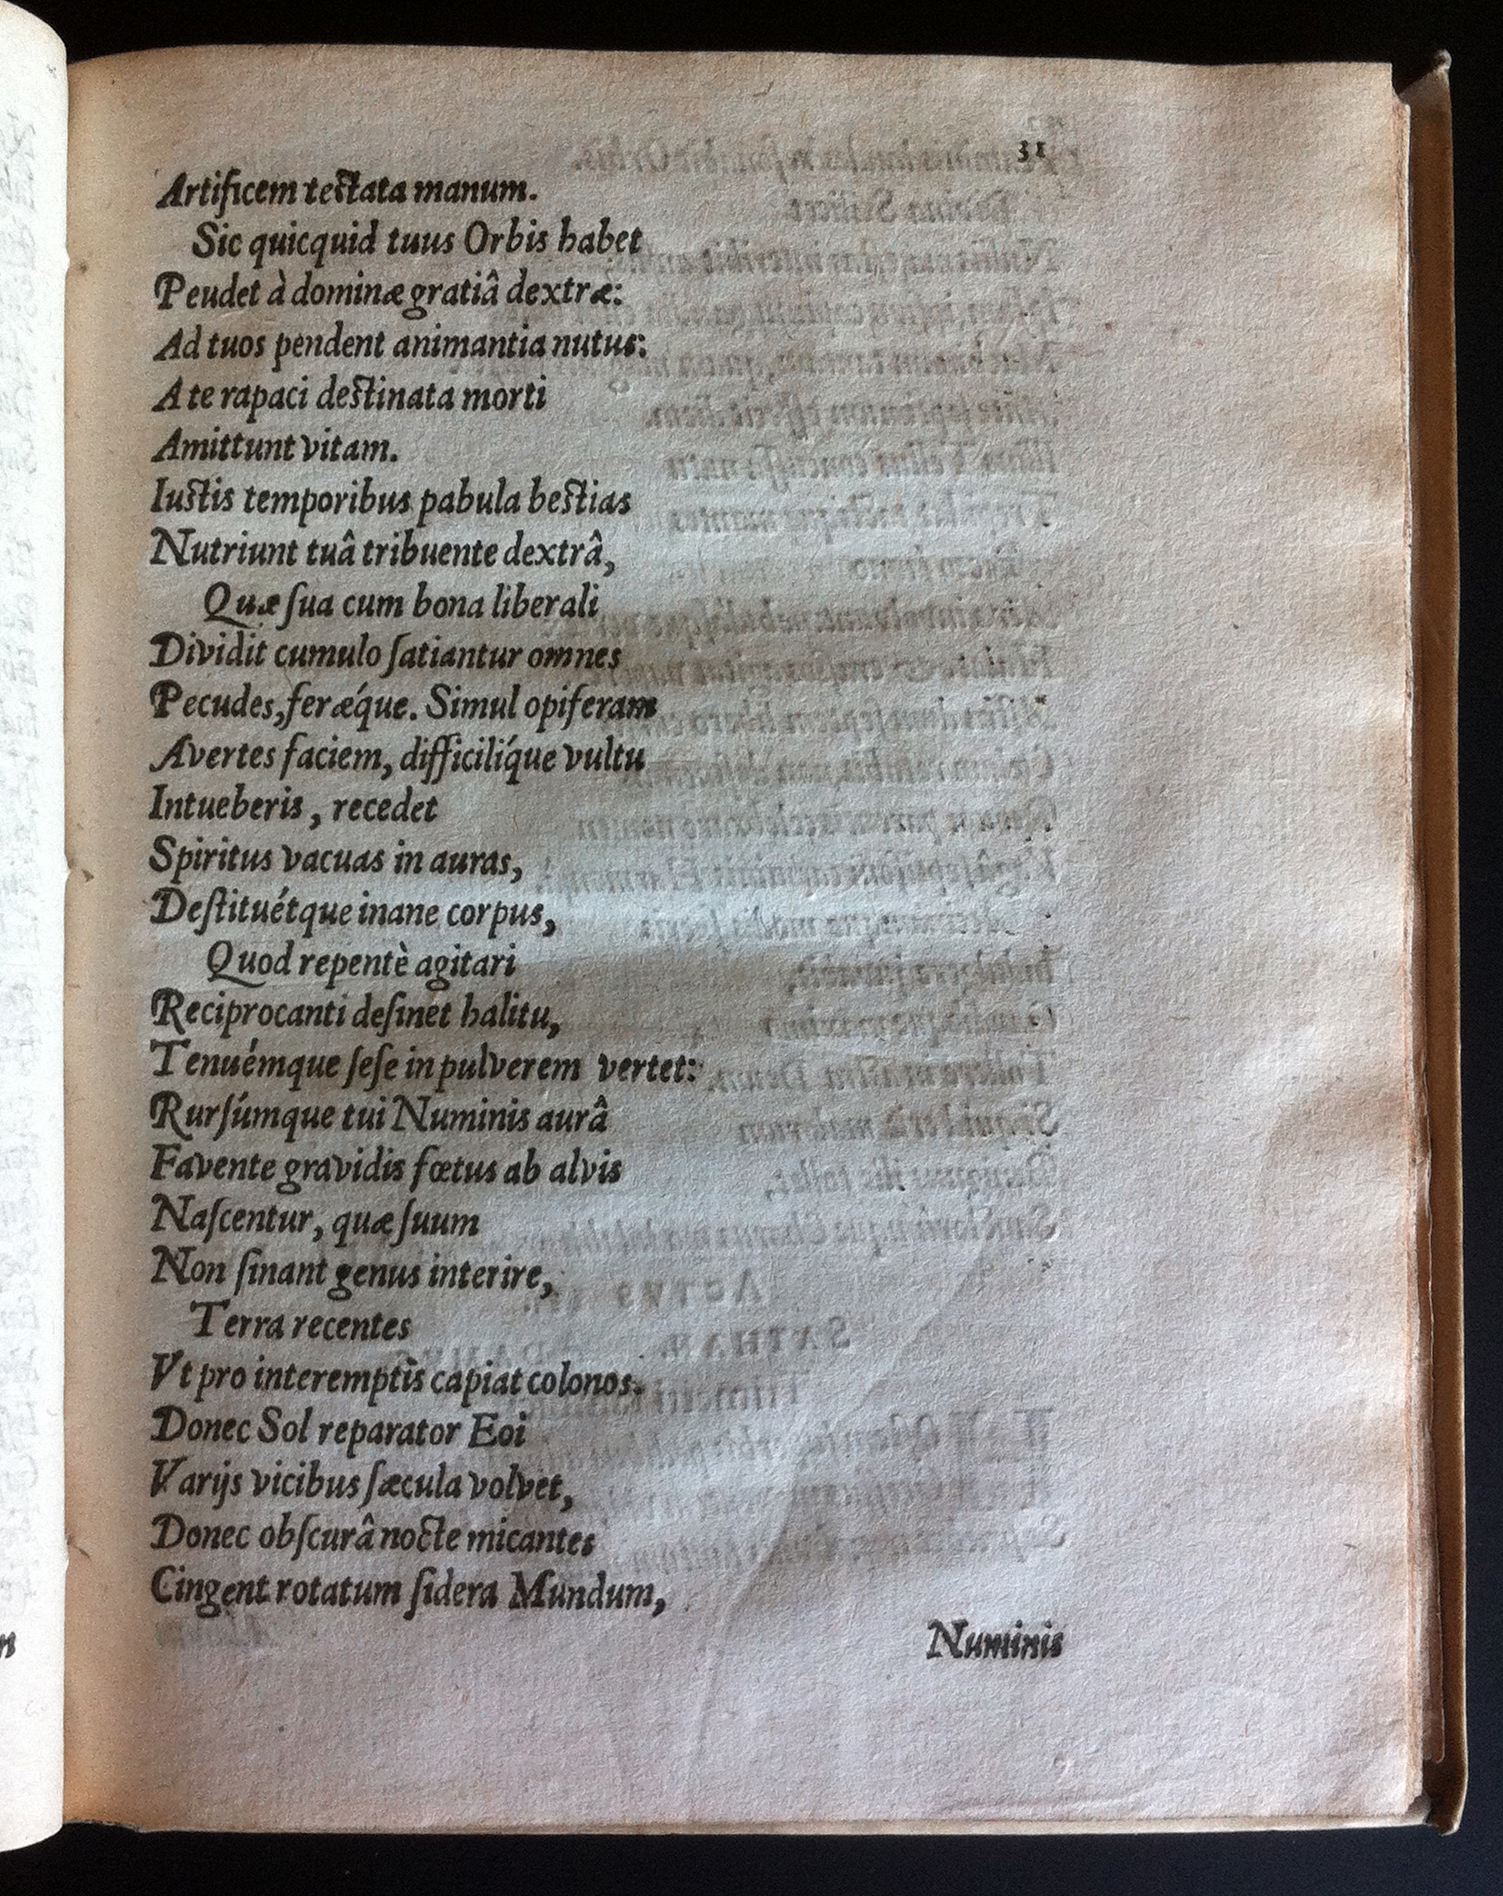 31
Artificem testata manum.
Sic quicquid tuus Orbis habet
Peudet à dominæ gratiâ dextræ:
Ad tuos pendent animantia nutus:
A te rapaci destinata morti
Amittunt vitam.
Iustis temporibus pabula bestias
Nutriunt tuâ tribuente dextrâ,
Quæ ſua cum bona liberali
Dividit cumulo ſatiantur omnes
Pecudes, ferǽque. Simul opiferam
Avertes faciem, difficilíque vultu
Intueberis, recedet
Spiritus vacuas in auras,
Deſtituétque inane corpus,
Quod repentè agitari
Reciprocanti deſinet halitu,
Tenuémque ſeſe in pulverem vertet:
Rurſúmque tui Numinis aurâ
Favente gravidis fœtus ab alvis
Naſcentur, quæ ſuum
Non ſinant genus interire,
Terra recentes
Vt pro interemptis capiat colonos.
Donec Sol reparator Eoi
Varijs vicibus ſæcula volvet,
Donec obſcurâ nocte micantes
Cingent rotatum ſidera Mundum,
Numinis